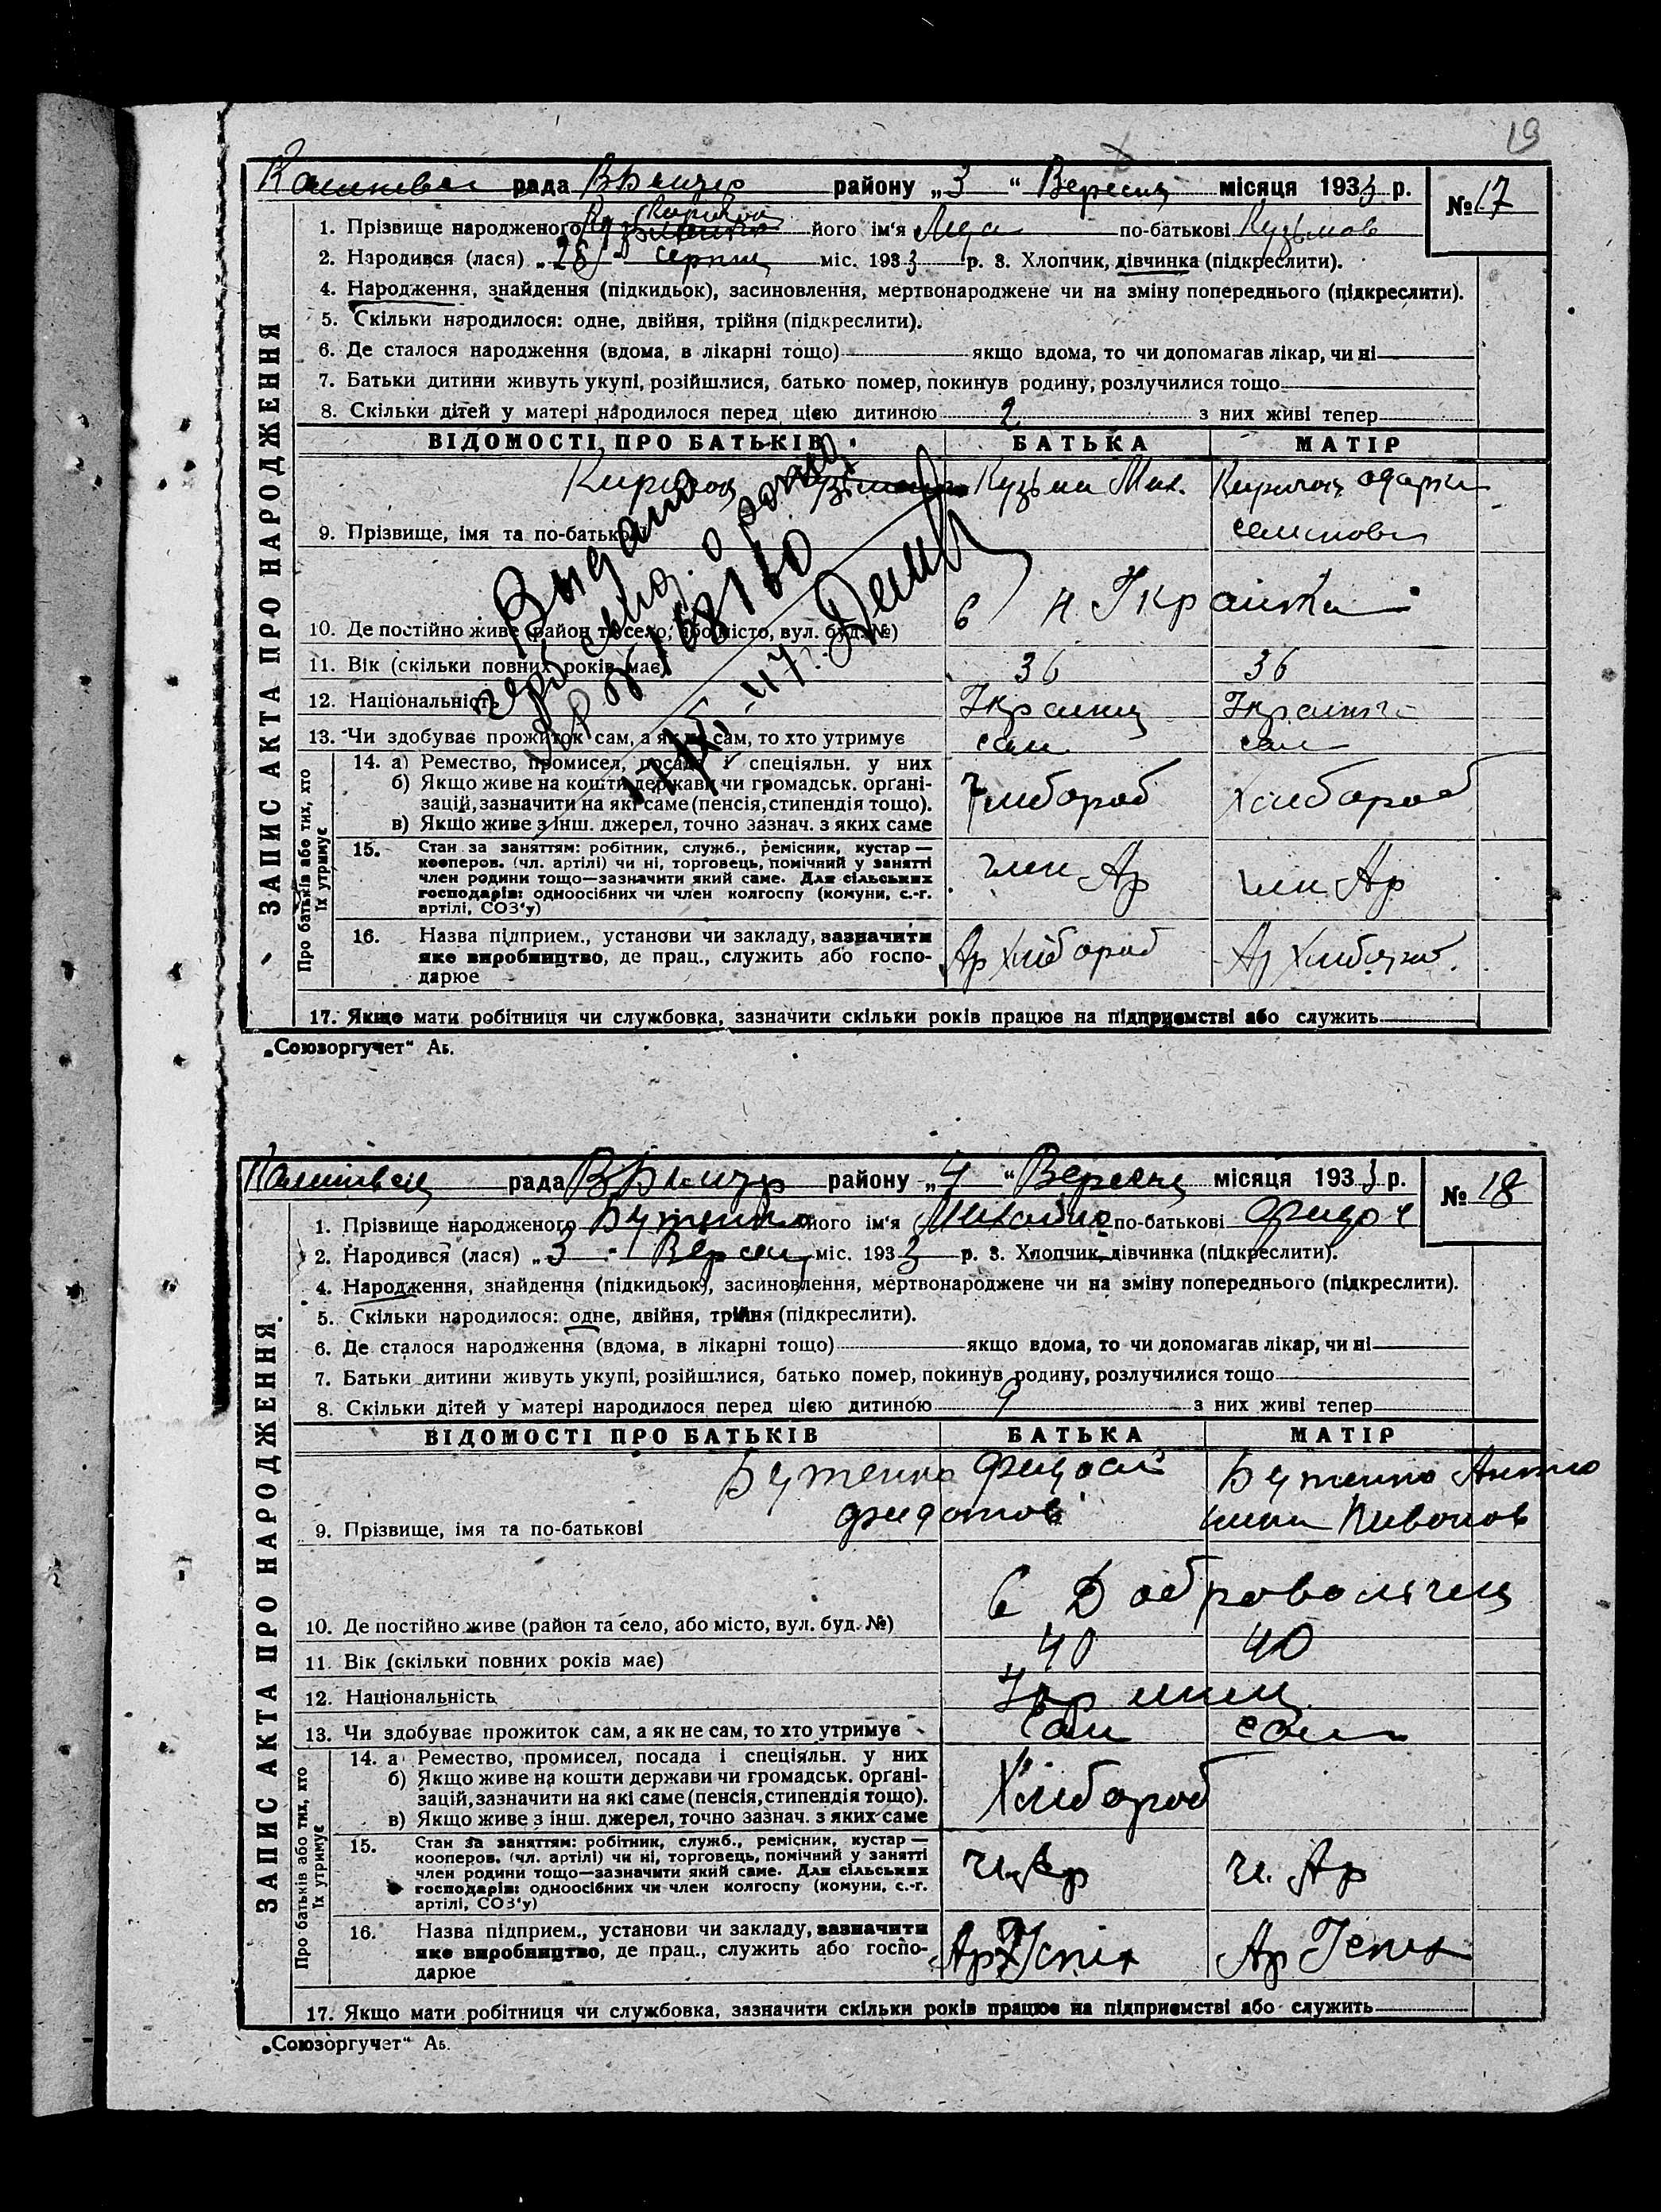 19
рада район у „3“ Вересня місяця 1933 р. № 17
1. Прізвище народженого його ім'я по-батькові Кузьмов
2. Народився (лася) „28“ серпня міс. 1933 р. 3. Хлопчик, дівчинка (підкреслити).
4. Народження, знайдення (підкидьок), засиновлення, мертвонароджене чи на зміну попереднього (підкреслити).
5. Скільки народилося: одне, двійня, трійня (підкреслити).
6. Де сталося народження (вдома, в лікарні тощо) якщо вдома, то чи допомагав лікар, чи ні
7. Батьки дитини живуть укупі, розійшлися, батько помер, покинув родину, розлучилися тощо
8. Скільки дітей у матері народилося перед цією дитиною 2 з них живі тепер
ЗАПИС АКТА ПРО НАРОДЖЕННЯ
ВІДОМОСТІ ПРО БАТЬКІВ БАТЬКА МАТІР
Кузьма Мих. Одарка
9. Прізвище, імя та по-батькові
10. Де постійно живе (район та село, або місто, вул. буд. №) Н. Українка
11. Вік (скільки повних років має) 36 36
12. Національність Українц Українка
13. Чи здобуває прожиток сам, а як не сам, то хто утримує сам сам
Про батьків або тих, хто їх утримує
14. а) Ремество, промисел, посада і спеціяльн. у них
б) Якщо живе на кошти держави чи громадськ. орґані-
зацій, зазначити на які саме (пенсія, стипендія тощо).
в) Якщо живе з інш. джерел, точно зазнач. з яких саме
Хлибороб Хлибороб
15. Стан за заняттям: робітник, служб., ремісник, кустар —
кооперов. (чл. артілі) чи ні, торговець, помічний у занятті
член родини тощо—зазначити який саме. Для сільських
господарів: одноосібних чи член колгоспу (комуни, с.-г.
артілі, СОЗ'у)
член Ар член Ар
16. Назва підприєм., установи чи закладу, зазначити
яке виробництво, де прац., служить або госпо-
дарює
Ар Хлибороб Ар Хлибороб
17. Якщо мати робітниця чи службовка, зазначити скільки років працює на підприємстві або служить
Выдано
свид. о рожд
168160
„Союзоргучет“ Аб.
рада району „4“ Вересня місяця 1933 р. № 18
1. Прізвище народженого Бутенко його ім'я Михайло по-батькові
2. Народився (лася) „3“ Вересня міс. 1933 р. 3. Хлопчик, дівчинка (підкреслити).
4. Народження, знайдення (підкидьок), засиновлення, мертвонароджене чи на зміну попереднього (підкреслити).
5. Скільки народилося: одне, двійня, трійня (підкреслити).
6. Де сталося народження (вдома, в лікарні тощо) якщо вдома, то чи допомагав лікар, чи ні
7. Батьки дитини живуть укупі, розійшлися, батько помер, покинув родину, розлучилися тощо
8. Скільки дітей у матері народилося перед цією дитиною 9 з них живі тепер
ЗАПИС АКТА ПРО НАРОДЖЕННЯ
ВІДОМОСТІ ПРО БАТЬКІВ БАТЬКА МАТІР
Бутенко Бутенко
9. Прізвище, імя та по-батькові
10. Де постійно живе (район та село, або місто, вул. буд. №)
11. Вік (скільки повних років має) 40 40
12. Національність
13. Чи здобуває прожиток сам, а як не сам, то хто утримує сам сам
Про батьків або тих, хто їх утримує
14. а Ремество, промисел, посада і спеціяльн. у них
б) Якщо живе на кошти держави чи громадськ. орґані-
зацій, зазначити на які саме (пенсія, стипендія тощо).
в) Якщо живе з інш. джерел, точно зазнач. з яких саме
Хлибороб
15. Стан за заняттям: робітник, служб., ремісник, кустар —
кооперов. (чл. артілі) чи ні, торговець, помічний у занятті
член родини тощо—зазначити який саме. Для сільських
господарів: одноосібних чи член колгоспу (комуни, с.-г.
артілі, СОЗ'у)
ч. Ар ч. Ар
16. Назва підприєм., установи чи закладу, зазначити
яке виробництво, де прац., служить або госпо-
дарює
Ар Успіх Ар Успіх
17. Якщо мати робітниця чи службовка, зазначити скільки років працює на підприємстві або служить
„Союзоргучет“ Аб.